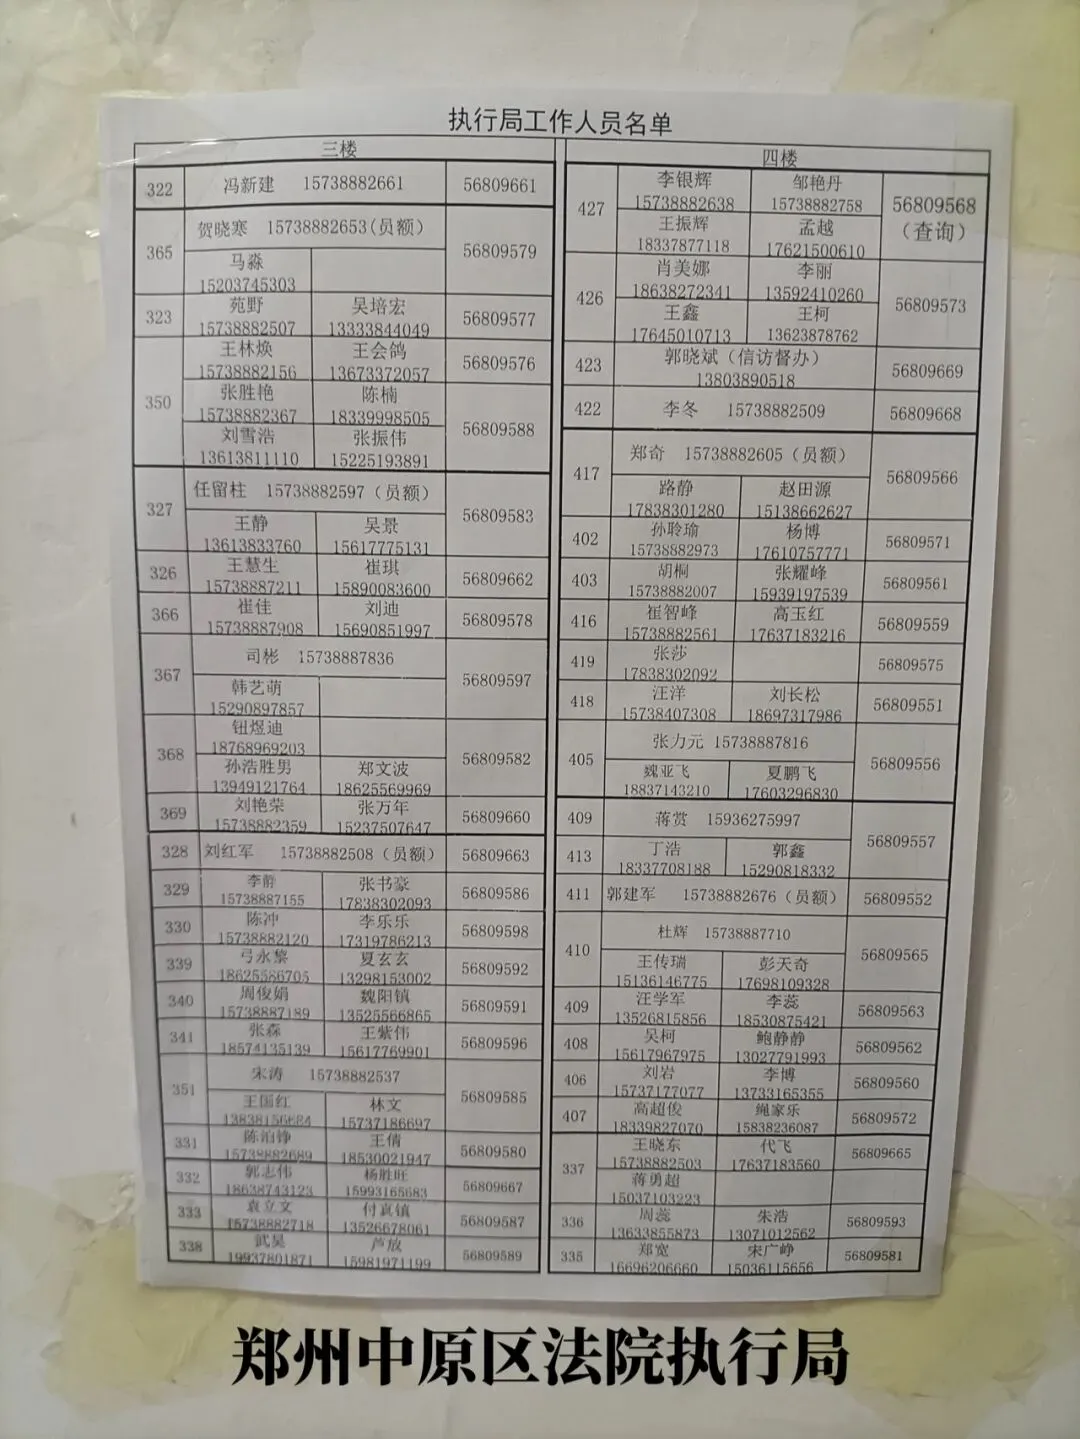 执行局工作人员名单
三楼
322 冯新建 15738882661 56809661
365 贺晓寒 15738882653(员额) 56809579
马淼
15203745303
323 苑野 吴培宏 56809577
15738882507 13333844049
350 王林焕 王会鸽 56809576
15738882156 13673372057
张胜艳 陈楠 56809588
15738882367 18339998505
刘雪浩 张振伟
13613811110 15225193891
327 任留柱 15738882597(员额) 56809583
王静 吴景
13613833760 15617775131
326 王慧生 崔琪 56809662
15738887211 15890083600
366 崔佳 刘迪 56809578
15738887908 15690851997
367 司彬 15738887836 56809597
韩艺萌
15290897857
368 钮煜迪 56809582
18768969203
孙浩胜男 郑文波
13949121764 18625569969
369 刘艳荣 张万年 56809660
15738882359 15237507647
328 刘红军 15738882508(员额) 56809663
329 李静 张书豪 56809586
15738887155 17838302093
330 陈冲 李乐乐 56809598
15738882120 17319786213
339 弓永黎 夏玄玄 56809592
18625586705 13298153002
340 周俊娟 魏阳镇 56809591
15738887189 13525566865
341 张森 王紫伟 56809596
18574135139 15617769901
351 宋涛 15738882537 56809585
王国红 林文
13838156684 15737186697
331 陈泊铮 王倩 56809580
15738882689 18530021947
332 郭志伟 杨胜旺 56809667
18638743123 15993165683
333 袁立文 付真镇 56809587
15738882718 13526678061
338 武昊 芦放 56809589
19937801871 15981971199
四楼
427 李银辉 邹艳丹 56809568
15738882638 15738882758 (查询)
王振辉 孟越
18337877118 17621500610
426 肖美娜 李丽 56809573
18638272341 13592410260
王鑫 王柯
17645010713 13623878762
423 郭晓斌(信访督办) 56809669
13803890518
422 李冬 15738882509 56809668
417 郑奇 15738882605(员额) 56809566
路静 赵田源
17838301280 15138662627
402 孙聆瑜 杨博 56809571
15738882973 17610757771
403 胡桐 张耀峰 56809561
15738882007 15939197539
416 崔智峰 高玉红 56809559
15738882561 17637183216
419 张莎 56809575
17838302092
418 汪洋 刘长松 56809551
15738407308 18697317986
405 张力元 15738887816 56809556
魏亚飞 夏鹏飞
18837143210 17603296830
409 蒋赏 15936275997 56809557
413 丁浩 郭鑫
18337708188 15290818332
411 郭建军 15738882676(员额) 56809552
410 杜辉 15738887710 56809565
王传瑞 彭天奇
15136146775 17698109328
409 汪学军 李蕊 56809563
13526815856 18530875421
408 吴柯 鲍静静 56809562
15617967975 13027791993
406 刘岩 李博 56809560
15737177077 13733165355
407 高超俊 绳家乐 56809572
18339827070 15838236087
337 王晓东 代飞 56809665
15738882503 17637183560
蒋勇超
15037103223
336 周蕊 朱浩 56809593
13633855873 13071012562
335 郑宽 宋广峥 56809581
16696206660 15036115656
郑州中原区法院执行局